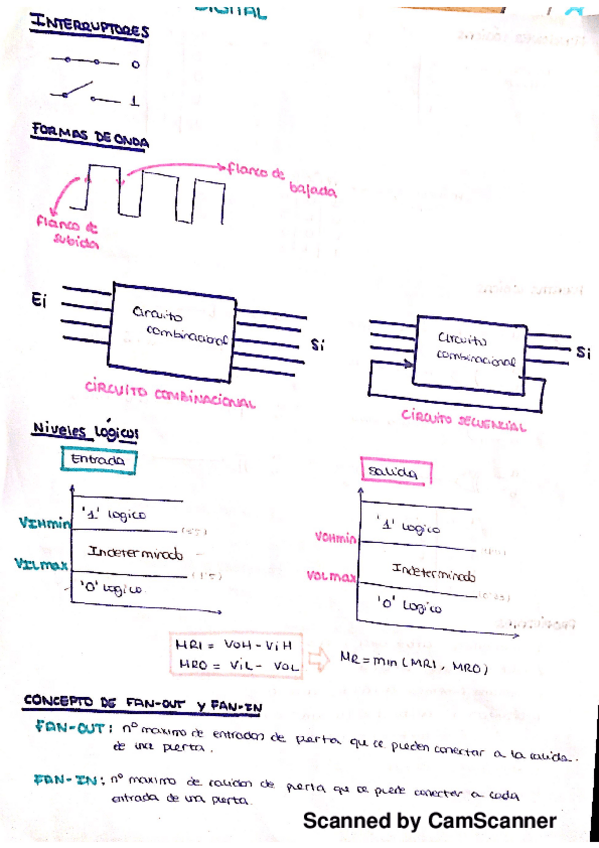 DIGITAL
INTERRUPTORES
0
1
FORMAS DE ONDA
flanco de
bajada
flanco de
subida
Ei
Circuito
combinacional
Si
CIRCUITO COMBINACIONAL
Circuito
combinacional
Si
CIRCUITO SECUENCIAL
Niveles lógicos
Entrada
VIHmin
'1' logico
Indeterminado
VILmax
'0' logico
Salida
VOHmin
'1' logico
Indeterminado
VOLmax
'0' logico
MR1 = VOH - ViH
MR0 = ViL - VOL
MR = min (MR1, MR0)
CONCEPTO DE FAN-OUT y FAN-IN
FAN-OUT: nº maximo de entradas de puerta que se pueden conectar a la salida
de una puerta.
FAN-IN: nº maximo de salidas de puerta que se puede conectar a cada
entrada de una puerta.
Scanned by CamScanner